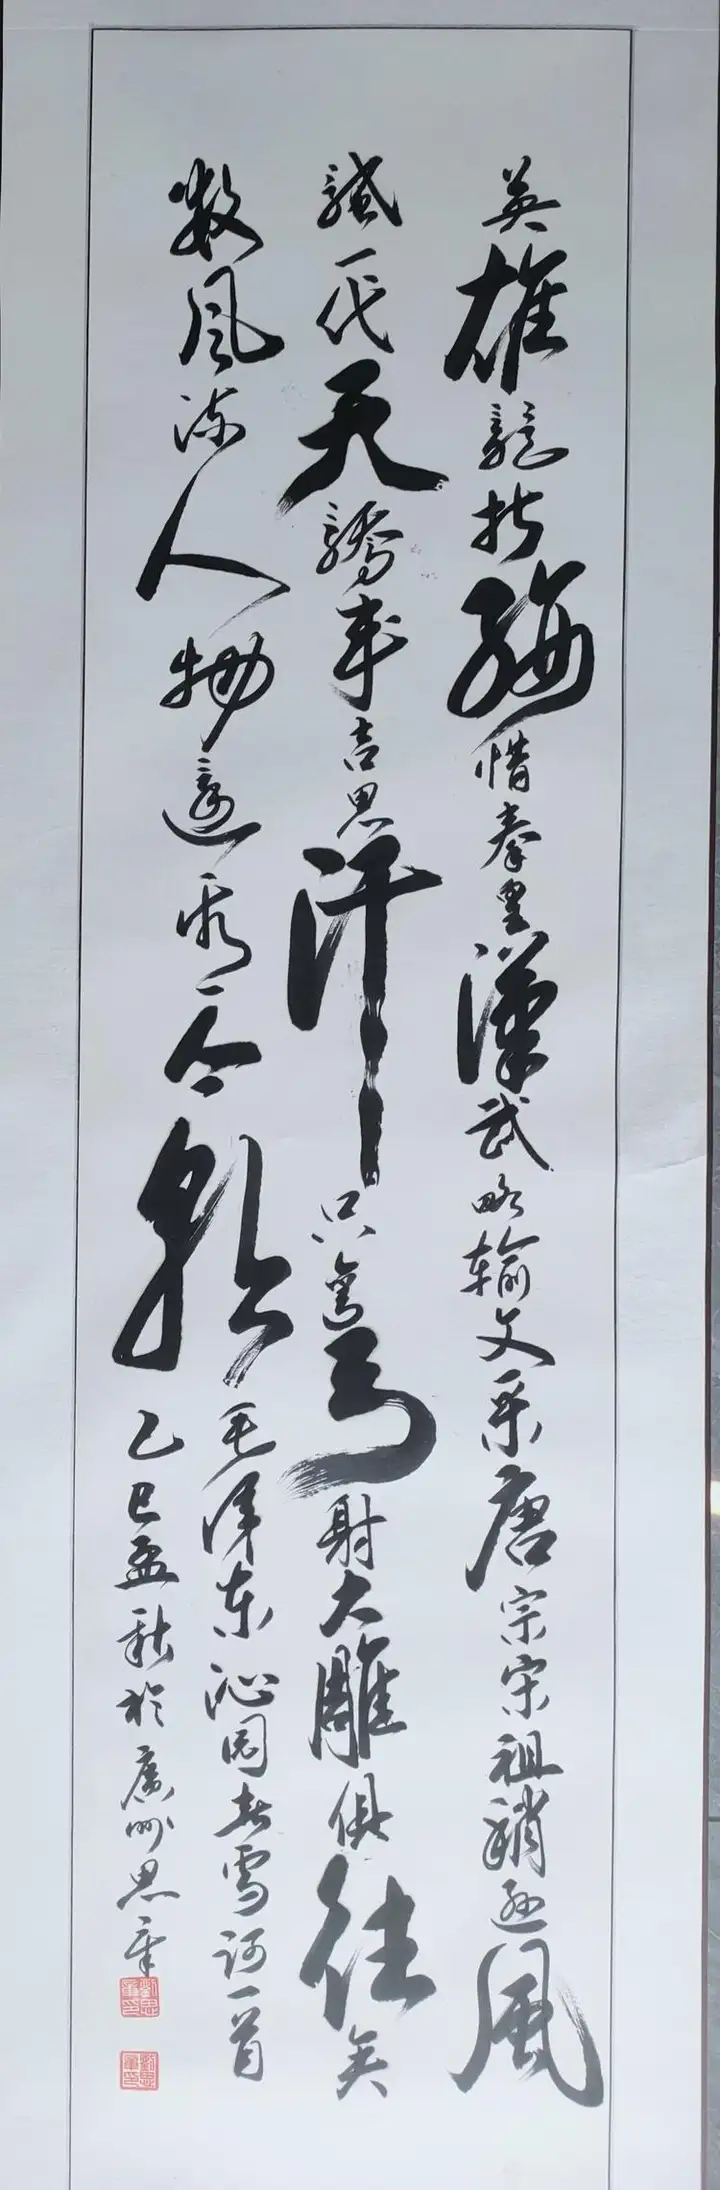 英雄競折腰惜秦皇漢武略輸文采唐宗宋祖稍遜風
騷一代天驕成吉思汗只彎弓射大雕俱往矣
數風流人物還看今朝
毛澤東沁園春雪詞一首
乙巳孟秋於廣州思軍